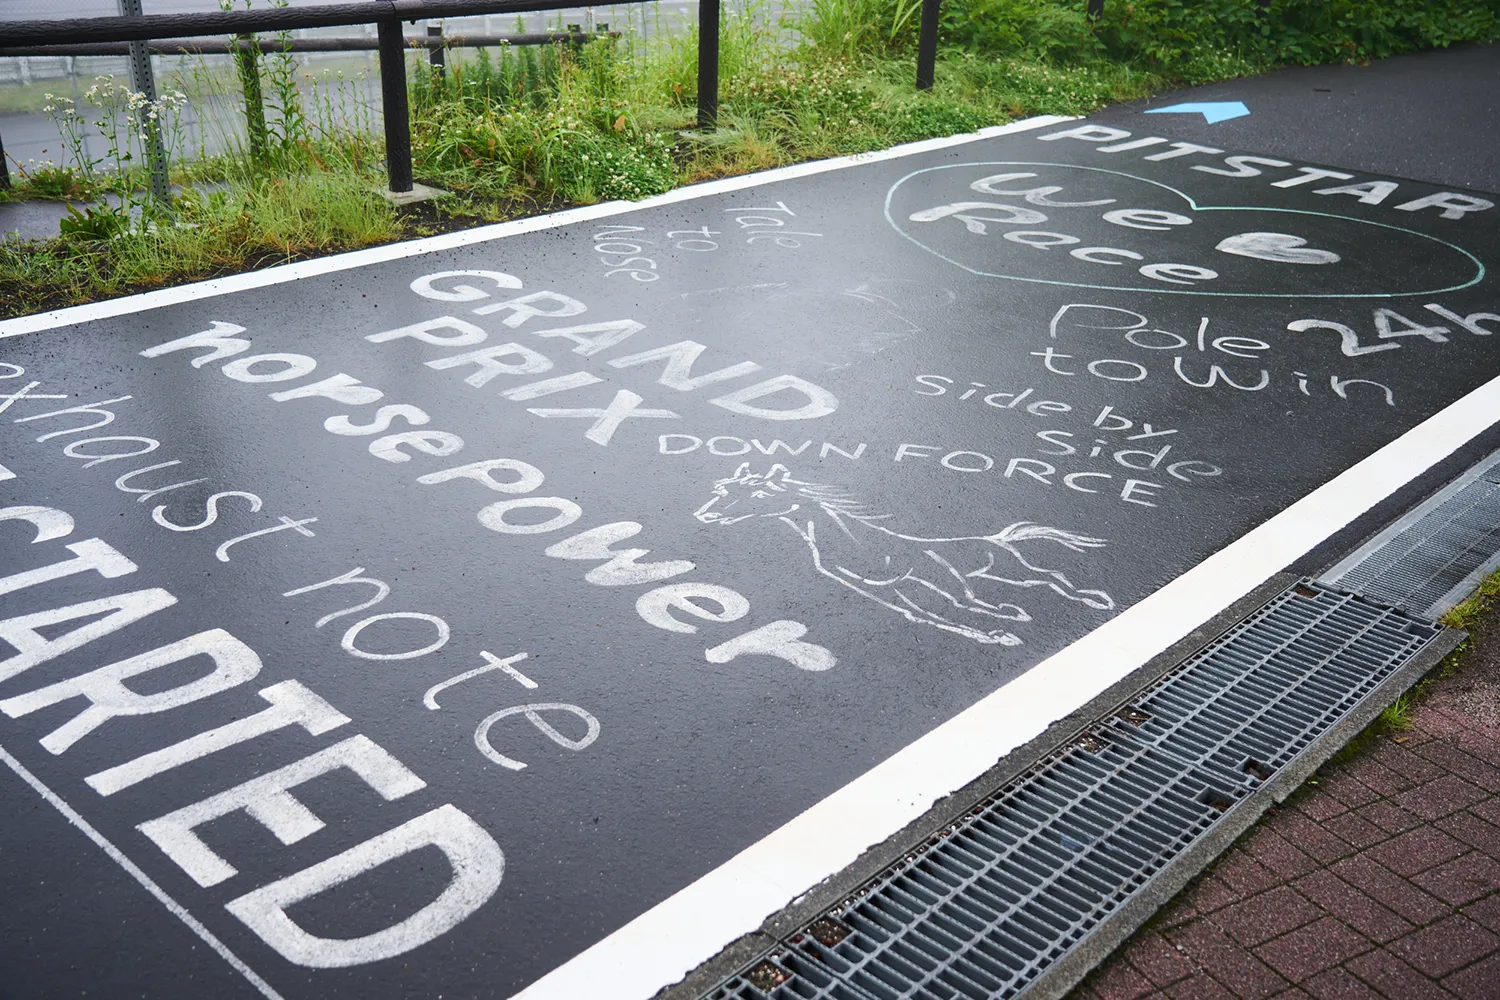 PITSTAR
We
Race
Pole
to Win
24h
Side by
Side
Tale
to
Nose
GRAND
PRIX
DOWN FORCE
horsepower
exhaust note
STARTED